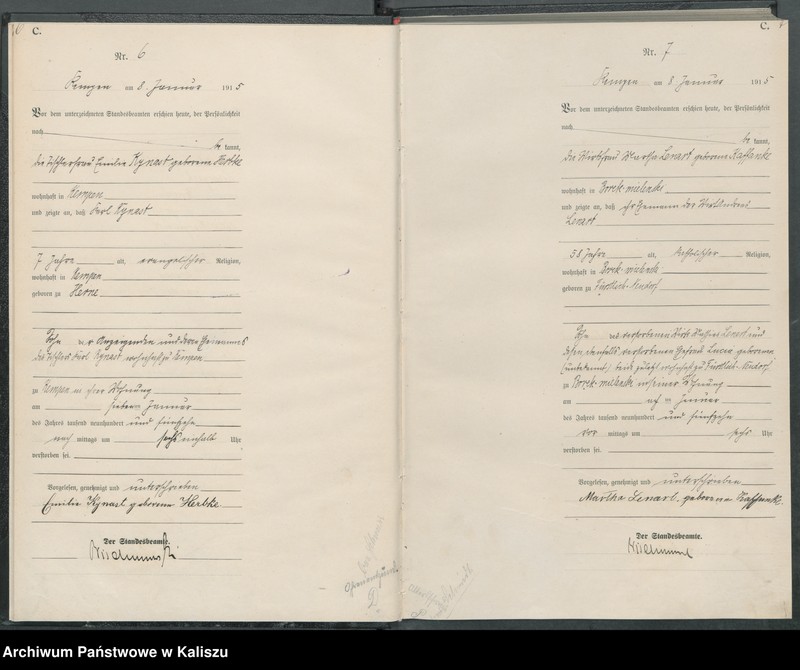 C.
Nr. 6
Kempen am 8 Januar 1915
Vor dem unterzeichneten Standesbeamten erschien heute, der Persönlichkeit
nach
be kannt,
die Tischlerfrau Emilie Kynast geborene
wohnhaft in Kempen
und zeigte an, daß Karl Kynast
7 Jahre alt, evangelischer Religion,
wohnhaft in Kempen
geboren zu Herne
Sohn der Anzeigenden und deren Ehemannes
des Tischlers Karl Kynast wohnhaft zu Kempen
zu Kempen in ihrer Wohnung
am siebten Januar
des Jahres tausend neunhundert und fünfzehn
nach mittags um sechs einhalb Uhr
verstorben sei.
Vorgelesen, genehmigt und unterschrieben
Emilie Kynast geborene
Der Standesbeamte.
C.
Nr. 7
Kempen am 8 Januar 1915
Vor dem unterzeichneten Standesbeamten erschien heute, der Persönlichkeit
nach
be kannt,
die Wirtsfrau Martha Lenart geborene
wohnhaft in Borek mielencki
und zeigte an, daß ihr Ehemann der Wirt Andreas
Lenart
58 Jahre alt, katholischer Religion,
wohnhaft in Borek mielencki
geboren zu Fürstlich-Neudorf
Sohn des verstorbenen Wirts Lenart und
dessen ebenfalls verstorbenen Ehefrau geborenen
(unbekannt) beide zuletzt wohnhaft zu Fürstlich-Neudorf
zu Borek mielencki in seiner Wohnung
am acht Januar
des Jahres tausend neunhundert und fünfzehn
vor mittags um sechs Uhr
verstorben sei.
Vorgelesen, genehmigt und unterschrieben
Martha Lenart, geborene
Der Standesbeamte.
Archiwum Państwowe w Kaliszu